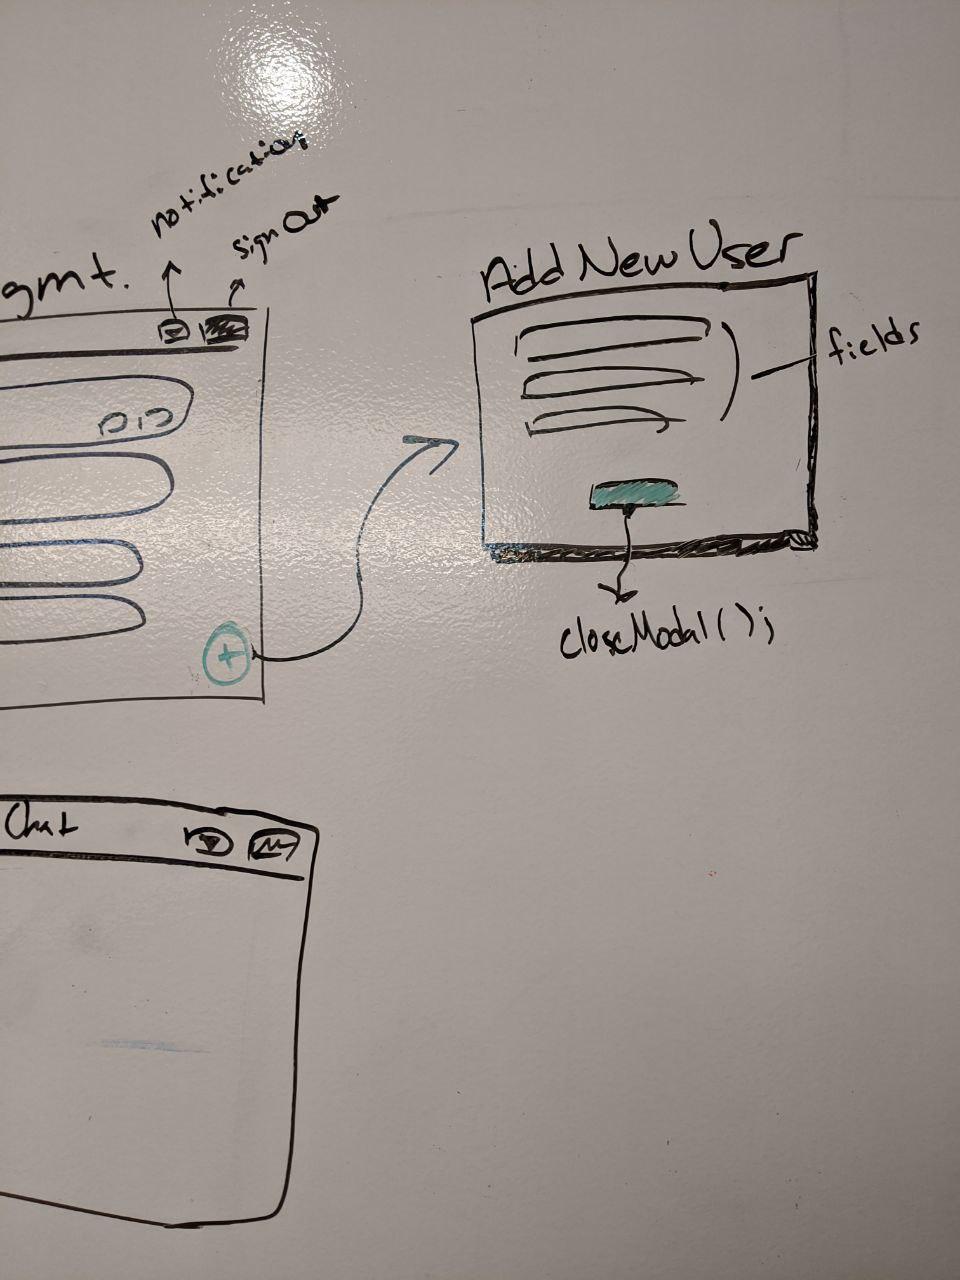 notification
sign Out
gmt.
Add New User
fields
+
closeModal();
Chat